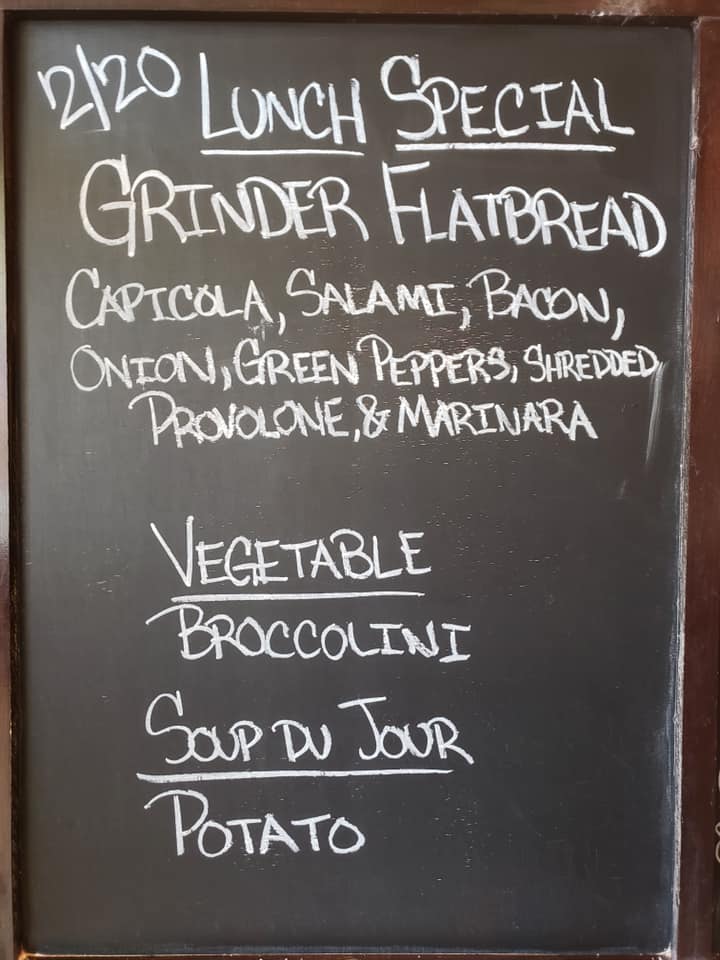 2/20 LUNCH SPECIAL
GRINDER FLATBREAD
CAPICOLA, SALAMI, BACON,
ONION, GREEN PEPPERS, SHREDDED
PROVOLONE, & MARINARA
VEGETABLE
BROCCOLINI
SOUP DU JOUR
POTATO